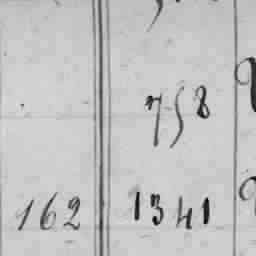 758
162 1341